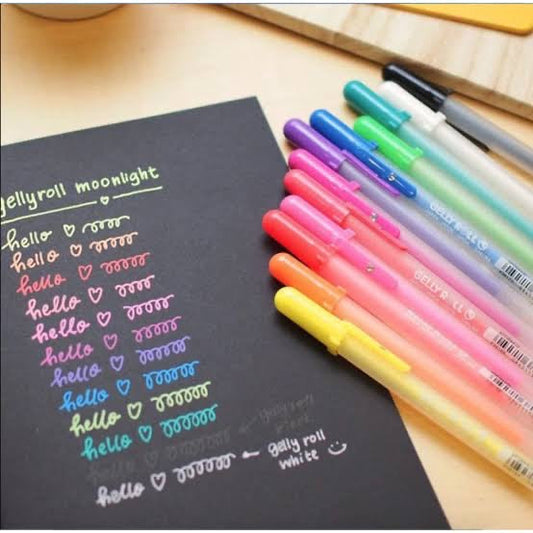 gellyroll moonlight
hello
hello
hello
hello
hello
hello
hello
hello
hello
hello
hello
gelly roll
black
hello
gelly roll
white
GELLY ROLL
GELLY ROLL